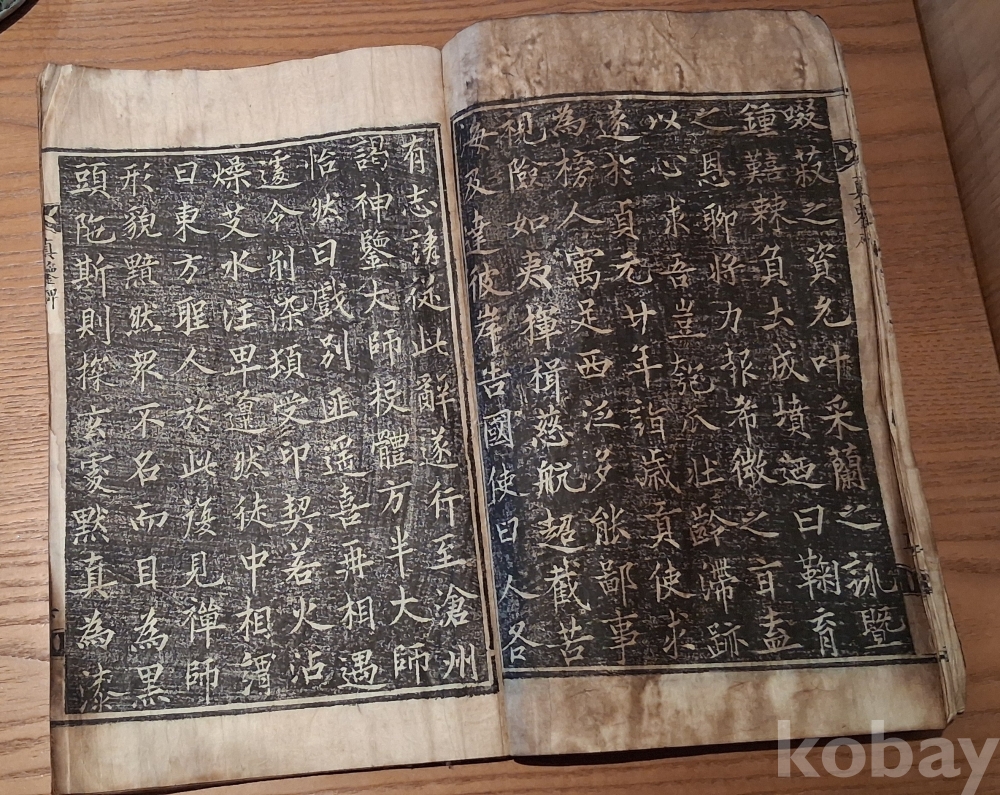 啜菽之資允叶采蘭之詠曁
鍾囏棘負土成墳廼曰鞠育
之恩聊將力報希微之旨盍
以心求吾豈匏瓜壯齡滯跡
遂於貞元廿年詣歲貢使求
為榜人寓足西泛多能鄙事
視險如夷揮楫慈航超截苦
海及達彼岸告國使曰人各
有志請從此辭遂行至滄州
謁神鑒大師投體方半大師
怡然曰戲別匪遙喜再相遇
遽令削染頓受印契若火沾
燥艾水注卑邍然徒中相謂
曰東方聖人於此復見禪師
形貌黯然衆不名而目為黑
頭陀斯則探玄處默真為漆
真鑒碑
kobay